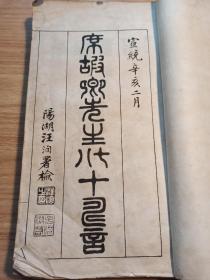 宣統辛亥二月
席嘏卿先生八十壽言
陽湖汪洵署檢